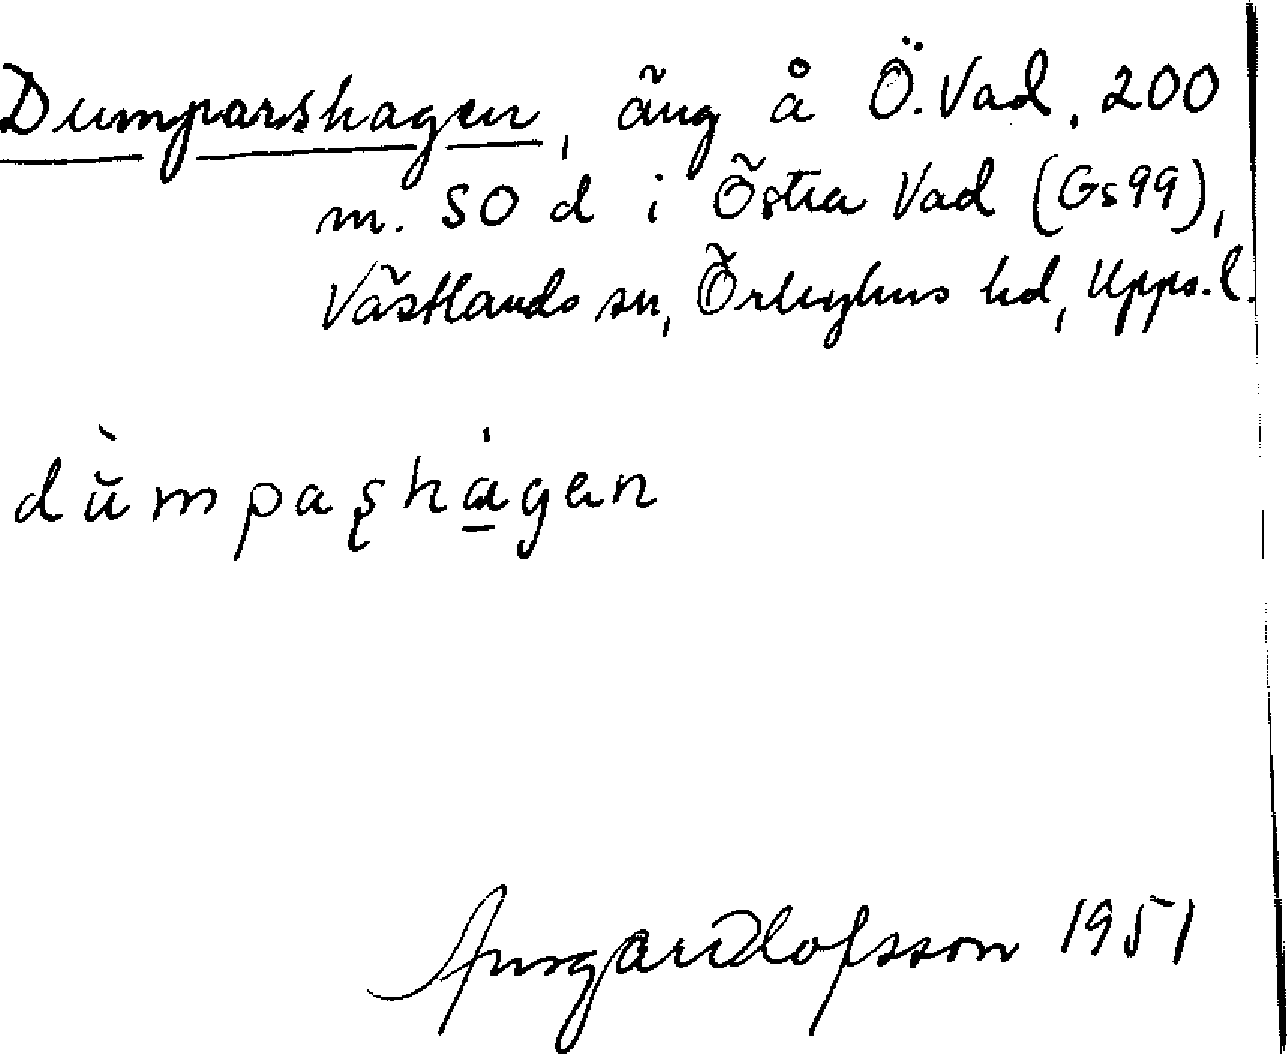 Dumparshagen, äng å Ö. Vad, 200
m. SO d i Östra Vad (Gs 99),
Västlands sn, Örbyhus hd, Upps. l.
dùmpaʂhágen
Ansgar Olofsson 1951